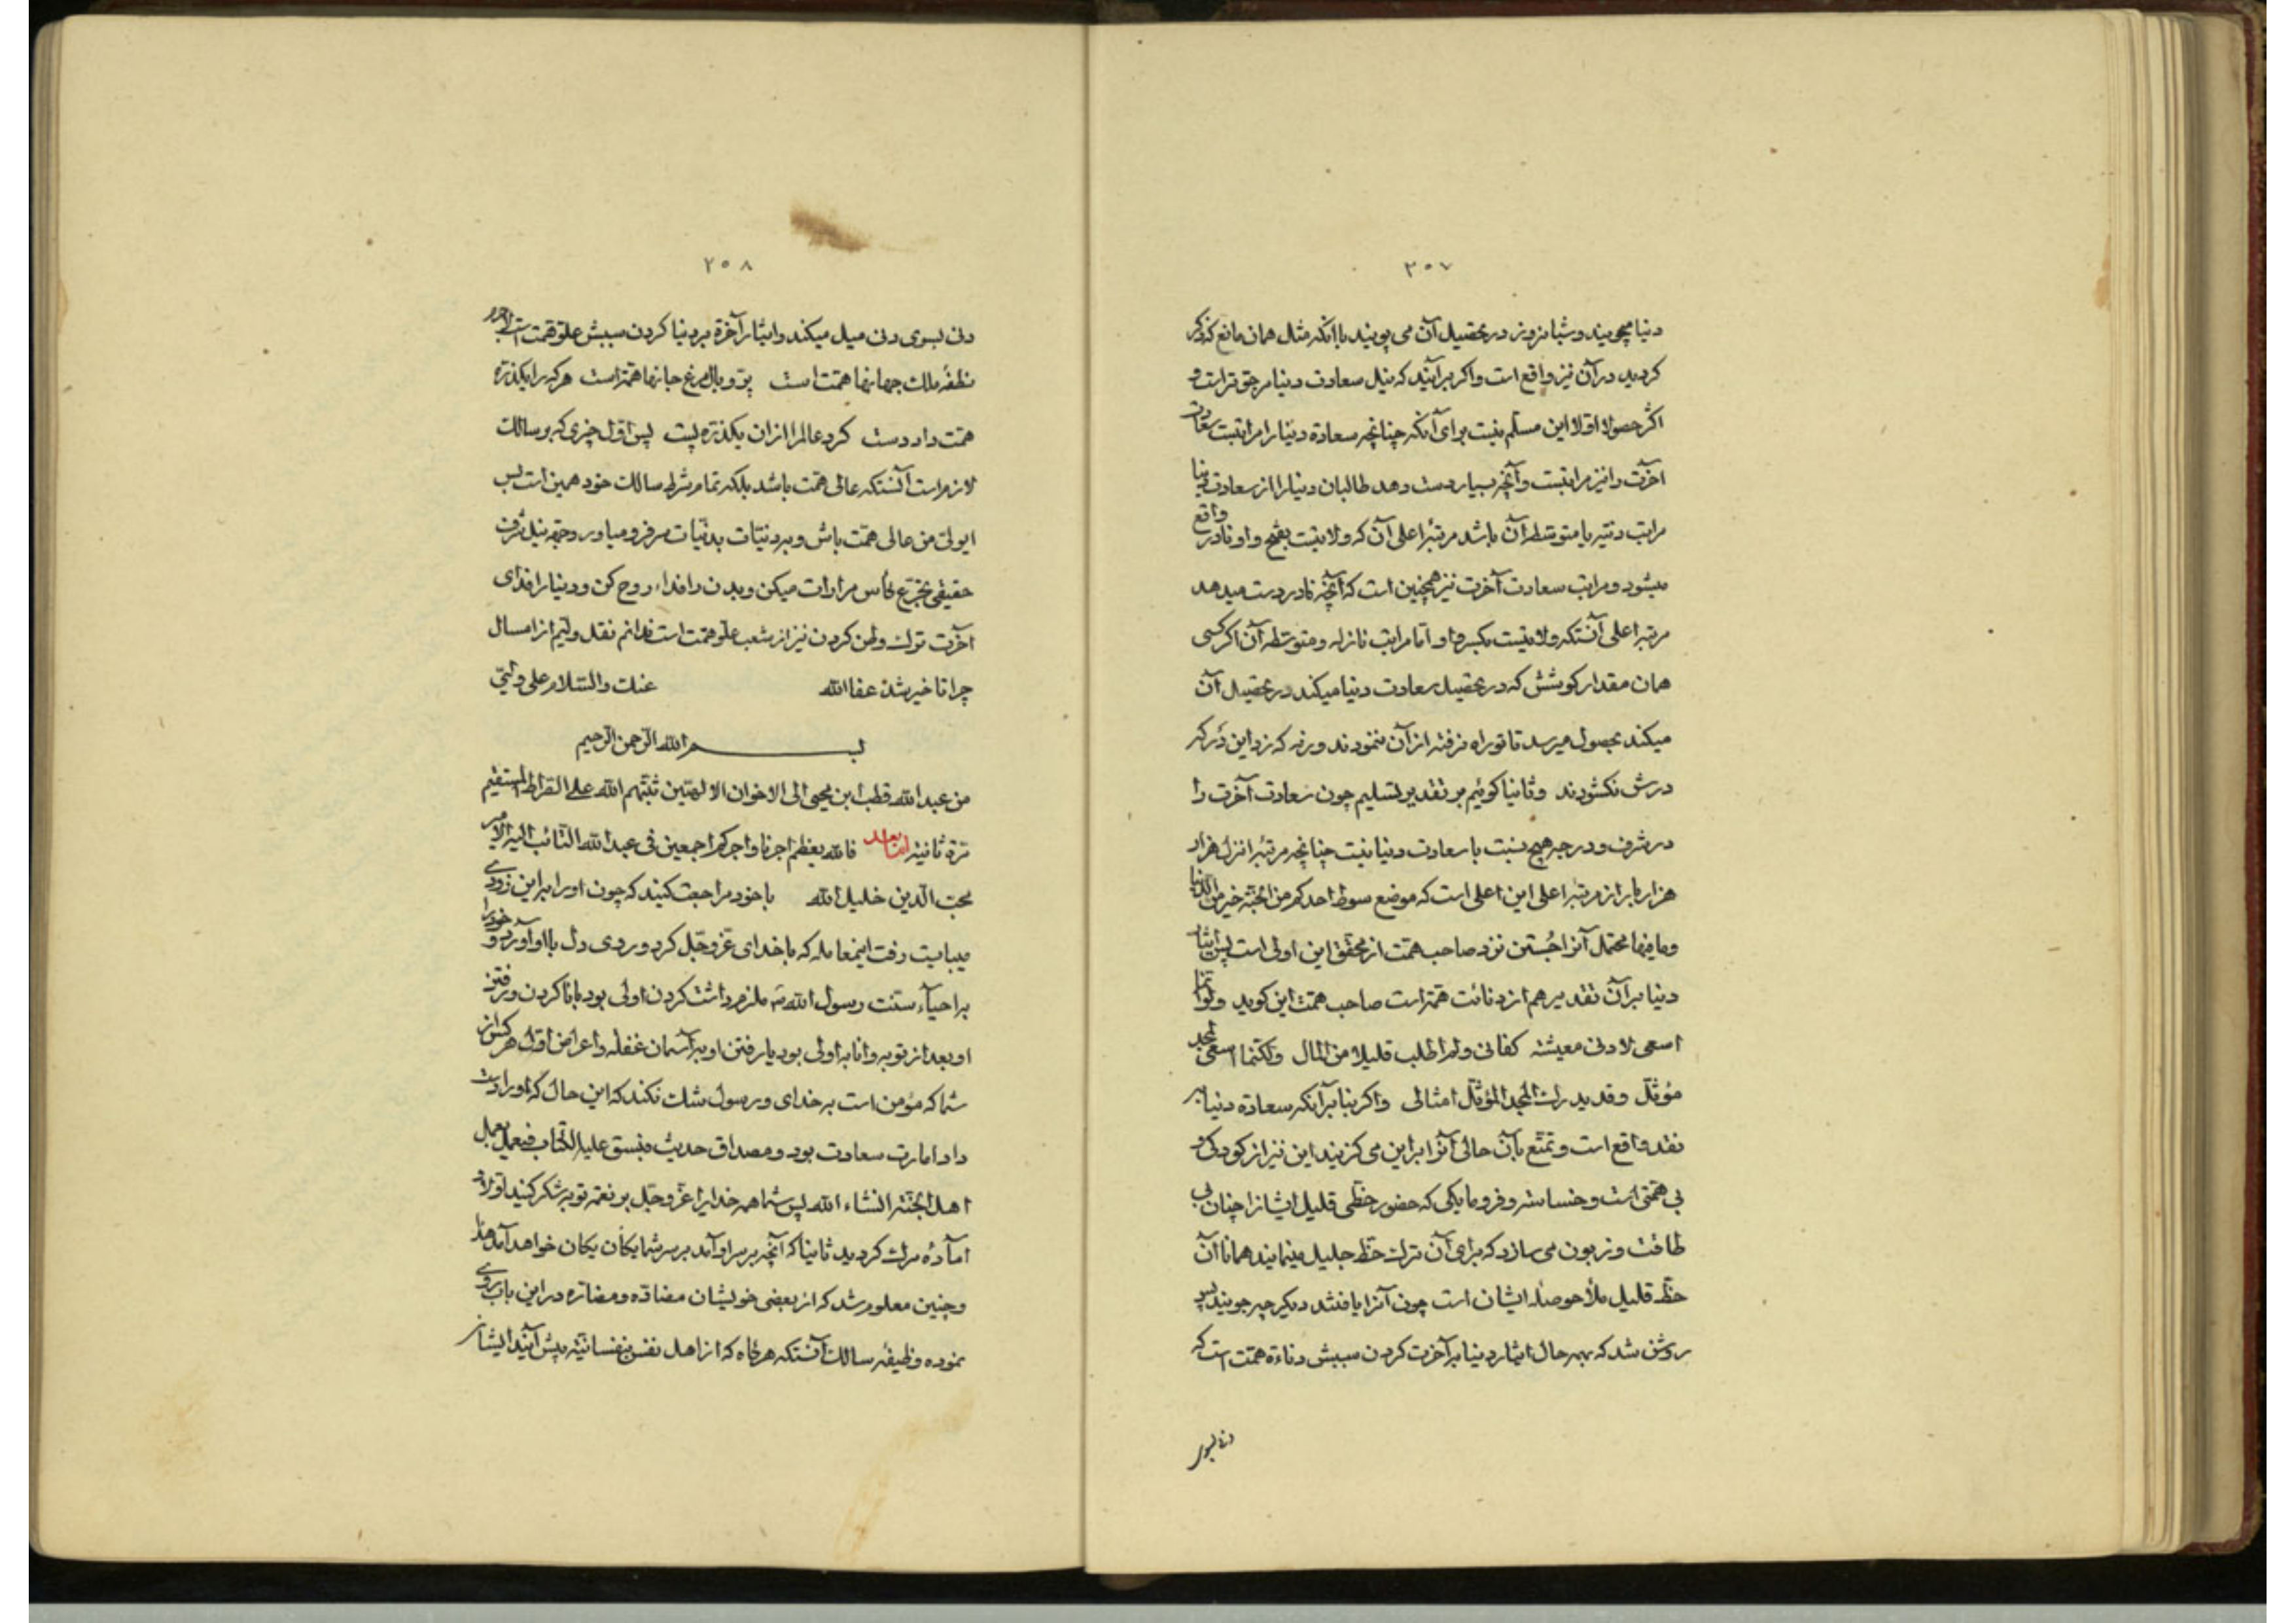 ۲۵۷
دنیا میجویند و شبانروز در تحصیل آن می پویند با آنکه مثل همان مانع که ذکر
کردید در آن نیز واقع است و اکر برآنند که نیل سعادت دنیا مرجو تر است و
اکثر حصولا اولا این مسلم نیست برای آنکه چنانچه سعادة دنیا را مراتبست سعادت
آخرت را نیز مراتبست و آنچه بسیار دست دهد طالبان دنیا را از سعادت دنیا
مراتب دنیه یا متوسطه آن باشد مرتبۀ اعلی آن که ولایتست بفتح واو نادر واقع
میشود و مراتب سعادت آخرت نیز همچنین است که آنچه نادر دست میدهد
مرتبۀ اعلی آنستکه ولایتست بکسر واو اما مراتب نازله و متوسطه آن اکر کسی
همان مقدار کوشش که در تحصیل سعادت دنیا میکند در تحصیل آن
میکند بحصول میرسد تا تو راه نرفتۀ از آن ننمودند ورنه که زد این در که
درش نکشودند و ثانیا کوئیم بر تقدیر تسلیم چون سعادت آخرت را
در شرف و درجه هیچ نسبت با سعادت دنیا نیست چنانچه مرتبۀ انزل هزار
هزار بار از مرتبۀ اعلی این اعلی است که موضع سوط احدکم من الجنة خیر من الدنیا
و ما فیها محتمل آنرا جُستن نزد صاحب همت از محقق این اولی است پس ایثار
دنیا بر آن تقدیر هم از دنائت همتست صاحب همت این کوید ولو انما
اسعی لادنی معیشة کفانی ولم اطلب قلیلا من المال ولکنما اسعی لمجد
مؤثل وقد یدرك المجد المؤثل امثالی و اکر بنا بر آنکه سعادة دنیا
نقد واقع است و تمتع بآن حالی آنرا بر این می کزینند این نیز از کودکی و
بی همتی است و خساست و فرومایکی که حضور حظی قلیل ایشانرا چنان بی
طاقت و زبون می سازد که برای آن ترك حظ جلیل مینمایند همانا آن
حظ قلیل ملأ حوصلۀ ایشان است چون آنرا یافتند دیکر چه جویند پس
روشن شد که بهر حال ایثار دنیا بر آخرت کردن سببش دناءة همت است که
دنی بسوی
۲۵۸
دنی بسوی دنی میل میکند و ایثار آخرة بر دنیا کردن سببش علو همت است
نطفۀ ملك جهانها همتست پر و بال مرغ جانها همتست هر که را یکذرّه
همّت داد دست کرد عالم را از ان یکذرّه پست پس اول چیزی که بر سالك
لازم است آنستکه عالی همّت باشد بلکه تمام شرط سالك خود همین است پس
ای ولیّ من عالی همّت باش و بدنیّات سر فرو میاور و جهة نیل شرف
حقیقی تجرّع کأس مرارات میکن و بدن را فداء روح کن و دنیا را فدای
آخرت ترك وطن کردن نیز از شعب علو همّت است ندانم نقد ولیم از امسال
چرا تاخیر شد عفا الله عنك والسّلام علی ولیّی
بسم الله الرّحمن الرّحیم
من عبد الله قطب ابن محیی الی الاخوان الالهیّین ثبّتهم الله علی الصّراط المستقیم
مرّة ثانیة اما بعد فالله یعظم اجرنا و اجرکم اجمعین فی عبد الله التّائب الیه الامیر
محبّ الّدین خلیل الله با خود مراجعت کنید که چون او را باین زودی
میبایست رفت اینمعامله که با خدای عزّ و جّل کرد و روی دل با او آورد و خود را
بر احیآء سنّت رسول الله ملزم داشت کردن اولی بود یا نا کردن و رفتن
او بعد از توبه و انابه اولی بود یا رفتن او بر آسمان غفله و اعراض اول هر کس از
شما که مؤمن است به خدای و رسول شك نکند که این حال که او را دست
داد امارت سعادت بود و مصداق حدیث فیسبق علیه الکتاب فیعمل بعمل
اهل الجنّة انشاء الله پس شما همه خدایرا عزّ و جّل بر نعمة توبه شکر کنید اولا و
آمادۀ مرك کردید ثانیا که آنچه بر سر او آمد بر سر شما یکان یکان خواهد آمد هذا
و چنین معلوم شد که از بعضی خویشان مضادّه و مضارّه در این باب بروی
نموده وظیفۀ سالك آنستکه هر کاه که از اهل نفس نفسانیّة پیش آید ایشانرا